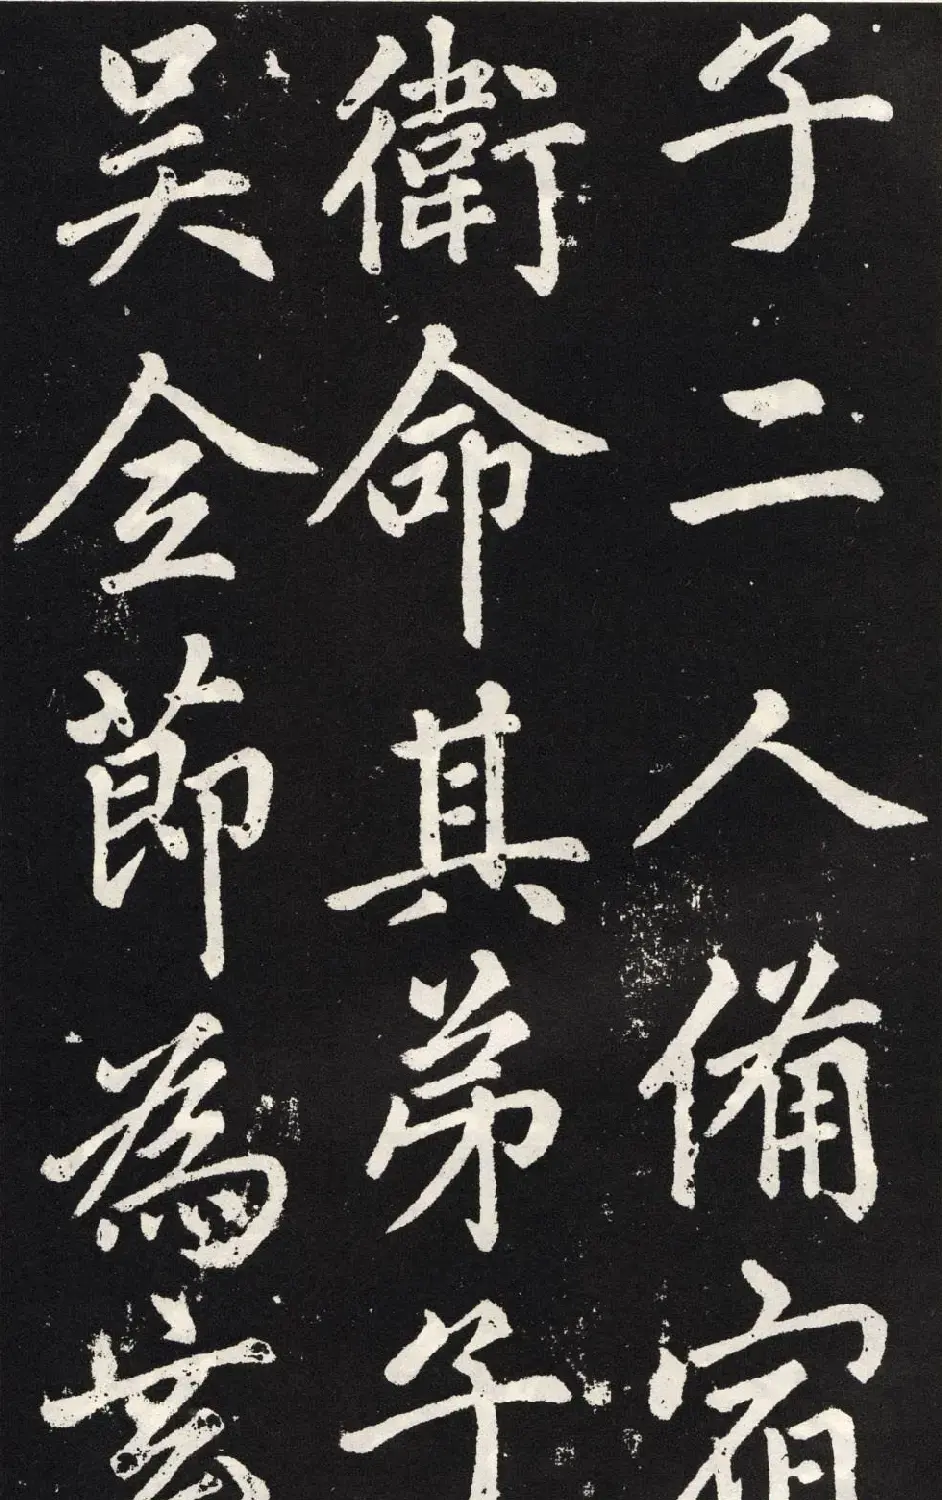 子二人備宿
衛命其弟子
吴全節為玄